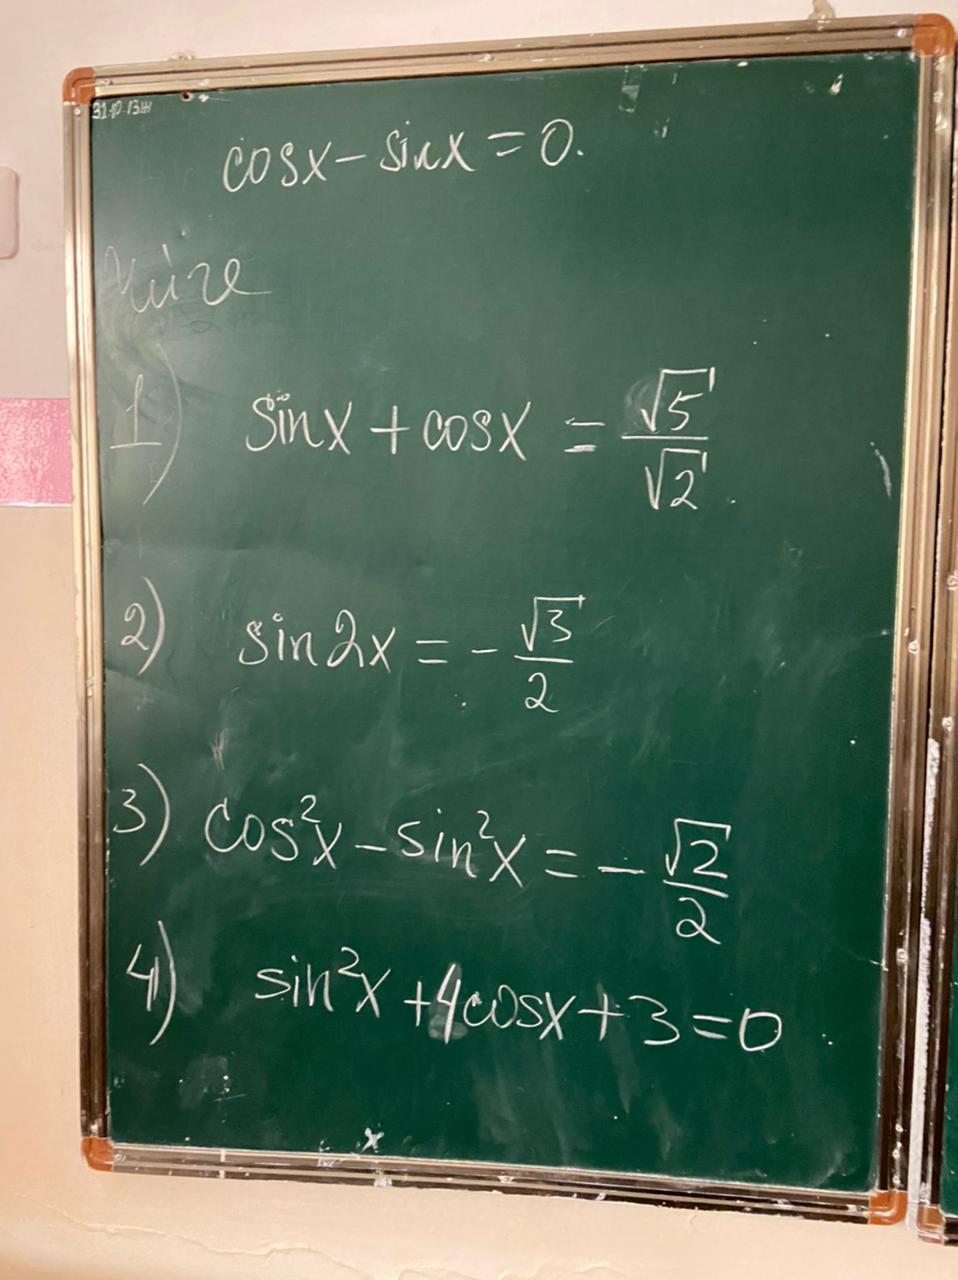 cosx - sinx = 0.
1) sinx + cosx = √5/√2.
2) sin2x = - √3/2
3) cos²x - sin²x = - √2/2
4) sin²x + 4cosx + 3 = 0